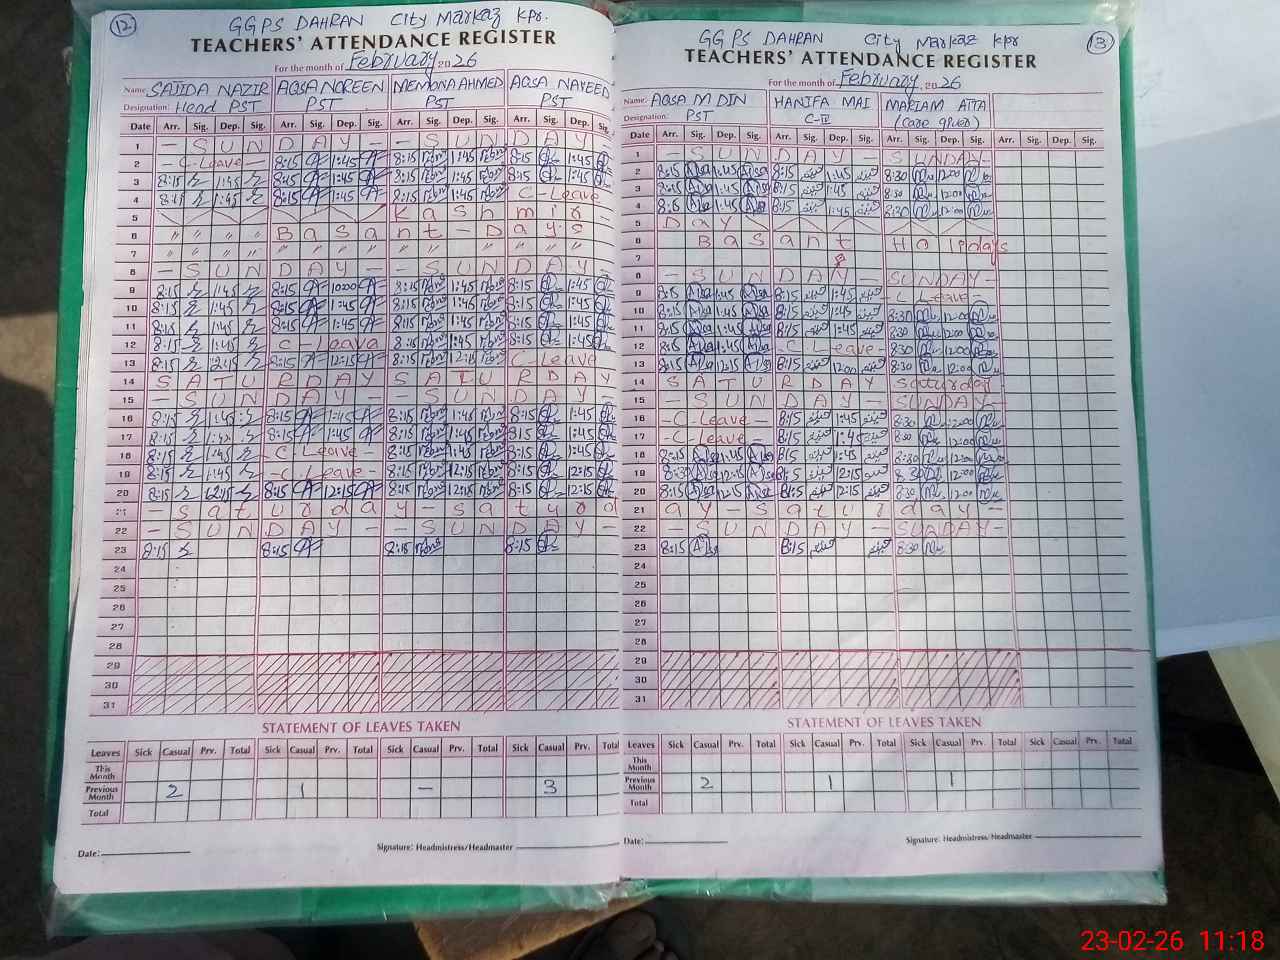 12
GGPS DAHRAN City Markaz Kpr.
TEACHERS' ATTENDANCE REGISTER
For the month of February 2026
Name: SAJIDA NAZIR AQSA NOREEN MEMONA AHMED AQSA NAVEED
Designation: Head PST PST PST PST
Date Arr. Sig. Dep. Sig. Arr. Sig. Dep. Sig. Arr. Sig. Dep. Sig. Arr. Sig. Dep. Sig.
1 - SUNDAY - - SUNDAY -
2 - C-Leave - 8:15 1:45 8:15 1:45 8:15 1:45
3 8:15 1:45 8:15 1:45 8:15 1:45 8:15 1:45
4 8:15 1:45 8:15 1:45 8:15 1:45 C-Leave
5 Kashmir
6 " " " " Basant - Days
7 " " " " " " " " " " " " " " "
8 - SUNDAY - - SUNDAY -
9 8:15 1:45 8:15 10:00 8:15 1:45 8:15 1:45
10 8:15 1:45 8:15 1:45 8:15 1:45 8:15 1:45
11 8:15 1:45 8:15 1:45 8:15 1:45 8:15 1:45
12 8:15 1:45 C-Leava 8:15 1:45 8:15 1:45
13 8:15 12:15 8:15 12:15 8:15 12:15 C-Leave
14 SATURDAY SATURDAY
15 - SUNDAY - - SUNDAY -
16 8:15 1:45 8:15 1:45 8:15 1:45 8:15 1:45
17 8:15 1:45 8:15 1:45 8:15 1:45 8:15 1:45
18 8:15 1:45 - C-Leave - 8:15 1:45 8:15 1:45
19 8:15 1:45 - C-Leave - 8:15 12:15 8:15 12:15
20 8:15 12:15 8:15 12:15 8:15 12:15 8:15 12:15
21 - saturday - saturd
22 - SUNDAY - - SUNDAY -
23 8:15 8:15 8:15 8:15
24
25
26
27
28
29
30
31
STATEMENT OF LEAVES TAKEN
Leaves Sick Casual Prv. Total Sick Casual Prv. Total Sick Casual Prv. Total Sick Casual Prv. Total
This Month
Previous Month 2 1 - 3
Total
Date: Signature: Headmistress/Headmaster
13
GGPS DAHRAN City Markaz Kpr
TEACHERS' ATTENDANCE REGISTER
For the month of February 2026
Name: AQSA M DIN HANIFA MAI MARIAM ATTA
Designation: PST C-IV (Care giver)
Date Arr. Sig. Dep. Sig. Arr. Sig. Dep. Sig. Arr. Sig. Dep. Sig. Arr. Sig. Dep. Sig.
1 - SUNDAY - SUNDAY -
2 8:15 1:45 8:15 1:45 8:30 12:00
3 8:15 1:45 8:15 1:45 8:30 12:00
4 8:15 1:45 8:15 1:45 8:30 12:00
5 Day
6 Basant Holidays
7
8 - SUNDAY - SUNDAY -
9 8:15 1:45 8:15 1:45 - C Leave -
10 8:15 1:45 8:15 1:45 8:30 12:00
11 8:15 1:45 8:15 1:45 8:30 12:00
12 8:15 1:45 - C Leave - 8:30 12:00
13 8:15 12:15 8:15 12:00 8:30 12:00
14 SATURDAY Saturday
15 - SUNDAY - SUNDAY -
16 - C-Leave - 8:15 1:45 8:30 12:00
17 - C-Leave - 8:15 1:45 8:30 12:00
18 8:15 1:45 8:15 1:45 8:30 12:00
19 8:30 12:15 8:15 12:15 8:30 12:00
20 8:15 12:15 8:15 12:15 8:30 12:00
21 ay - Saturday -
22 - SUNDAY - SUNDAY -
23 8:15 8:15 8:30
24
25
26
27
28
29
30
31
STATEMENT OF LEAVES TAKEN
Leaves Sick Casual Prv. Total Sick Casual Prv. Total Sick Casual Prv. Total Sick Casual Prv. Total
This Month
Previous Month 2 1 1
Total
Date: Signature: Headmistress/Headmaster
23-02-26 11:18